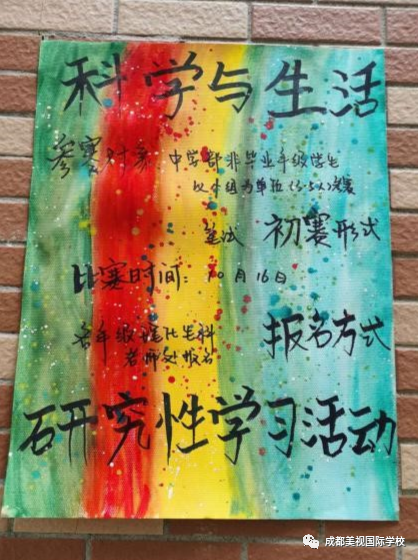 科学与生活
参赛对象 中学部非毕业年级学生
以小组为单位(3-5人)参赛
初赛形式 笔试
比赛时间：10月16日
报名方式 各年级理化生科
老师处报名
研究性学习活动
成都美视国际学校